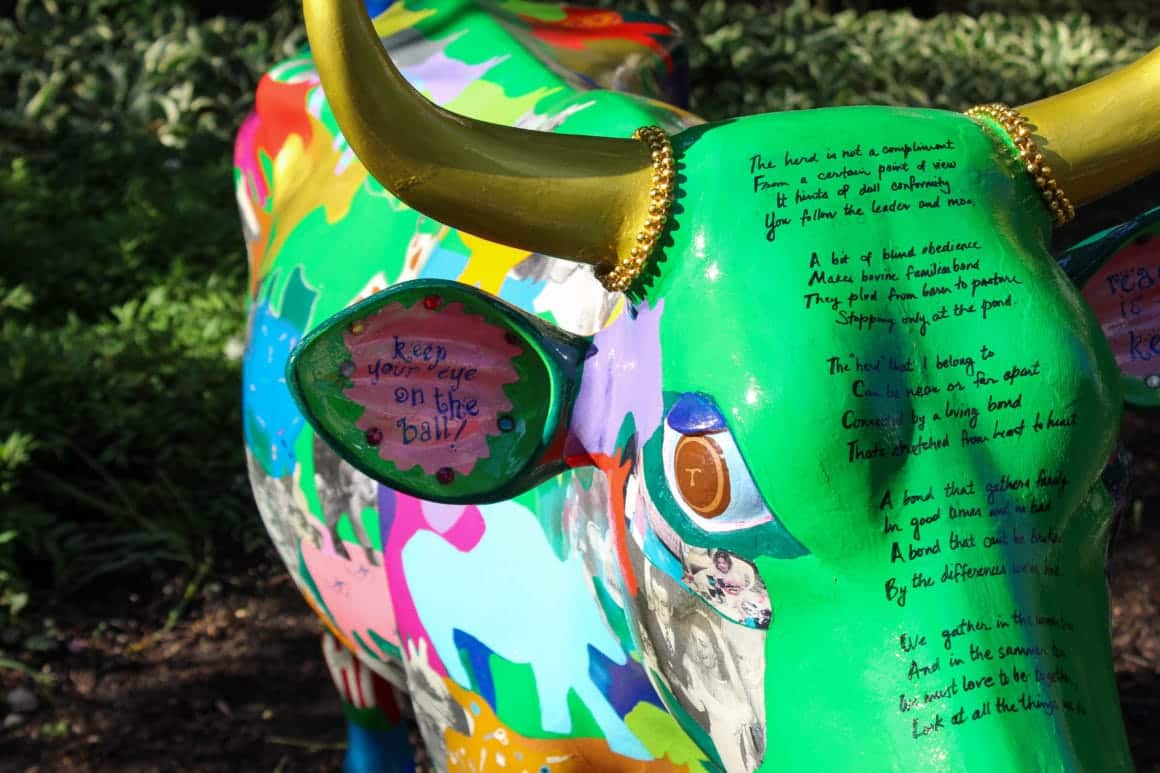 keep
your eye
on the
ball!
r
The herd is not a compliment
From a certain point of view
It hints of dull conformity
You follow the leader and moo.
A bit of blind obedience
Makes bovine families bond
They plod from barn to pasture
Stopping only at the pond.
The "herd" that I belong to
Can be near or far apart
Connected by a living bond
Thats stretched from heart to heart
A bond that gathers family
In good times and in bad
A bond that can't be broke
By the differences we've had
We gather in the
And in the summer too
We must love to be together
Look at all the things we do
is
ke